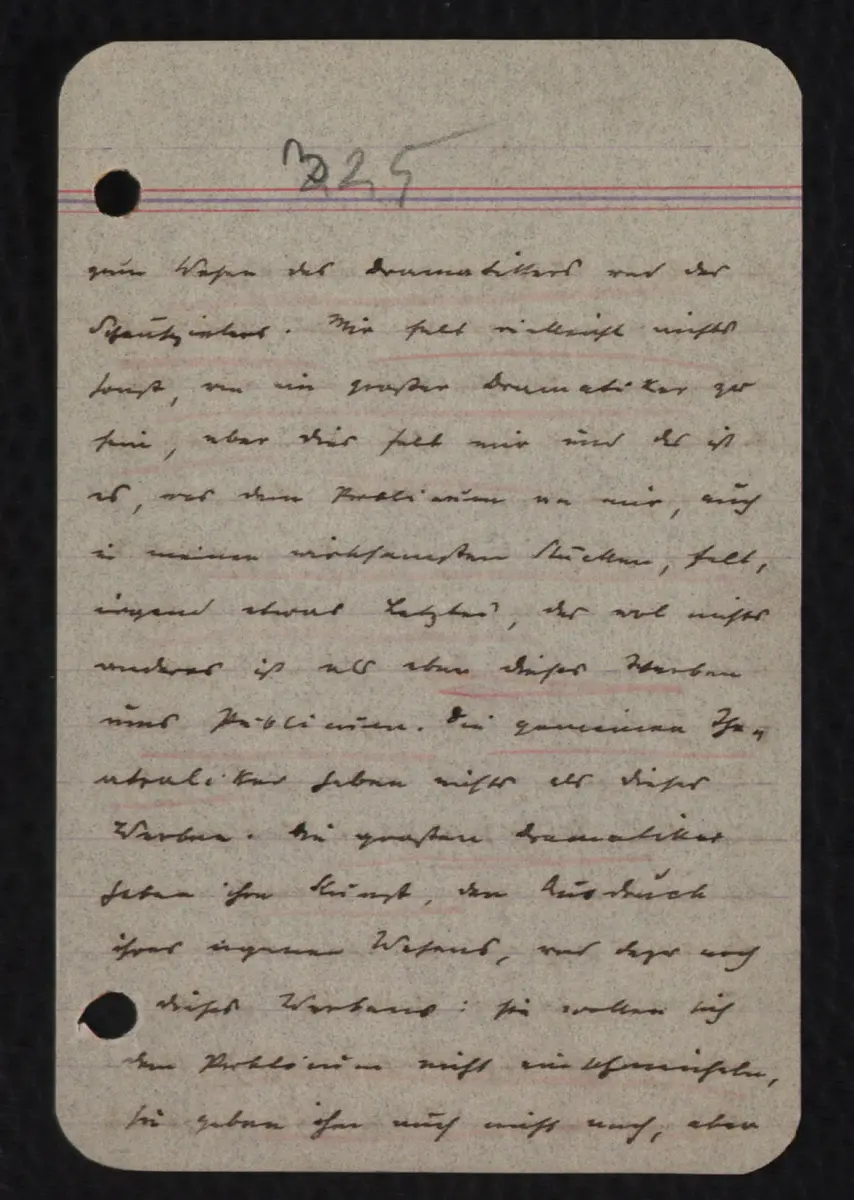 325
zum Wesen des Dramatikers und des
Schauspielers. Mir felt vielleicht nichts
sonst, um ein großer Dramatiker zu
sein, aber dies felt mir und das ist
es, was dem Publicum an mir, auch
in meinen wirksamsten Stücken, felt,
irgend etwas Letztes, das wol nichts
anderes ist als eben dieses Werben
ums Publicum. Die gemeinen The„
atraliker haben nichts als dieses
Werben. Die großen Dramatiker
haben ihre Kunst, den Ausdruck
ihres eigenen Wesens, und dazu noch
dieses Werbens: sie wollen sich
dem Publicum nicht einschmeicheln,
sie geben ihm auch nicht nach, aber